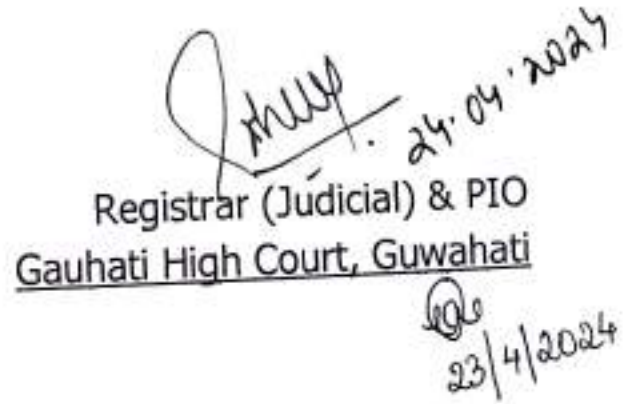 24.04.2024
Registrar (Judicial) & PIO
Gauhati High Court, Guwahati
23/4/2024